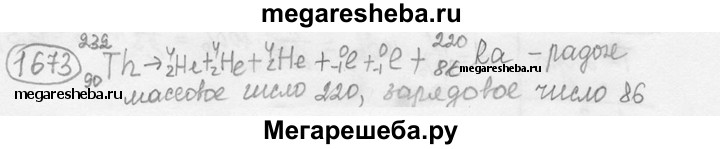 megaresheba.ru
1673 ²³²₉₀Th → ⁴₂He + ⁴₂He + ⁴₂He + ⁰₋₁e + ⁰₋₁e + ²²⁰₈₆Ra - радон
megaresheba.ru
megaresheba.ru массовое число 220, зарядовое число 86
Мегарешеба.ру